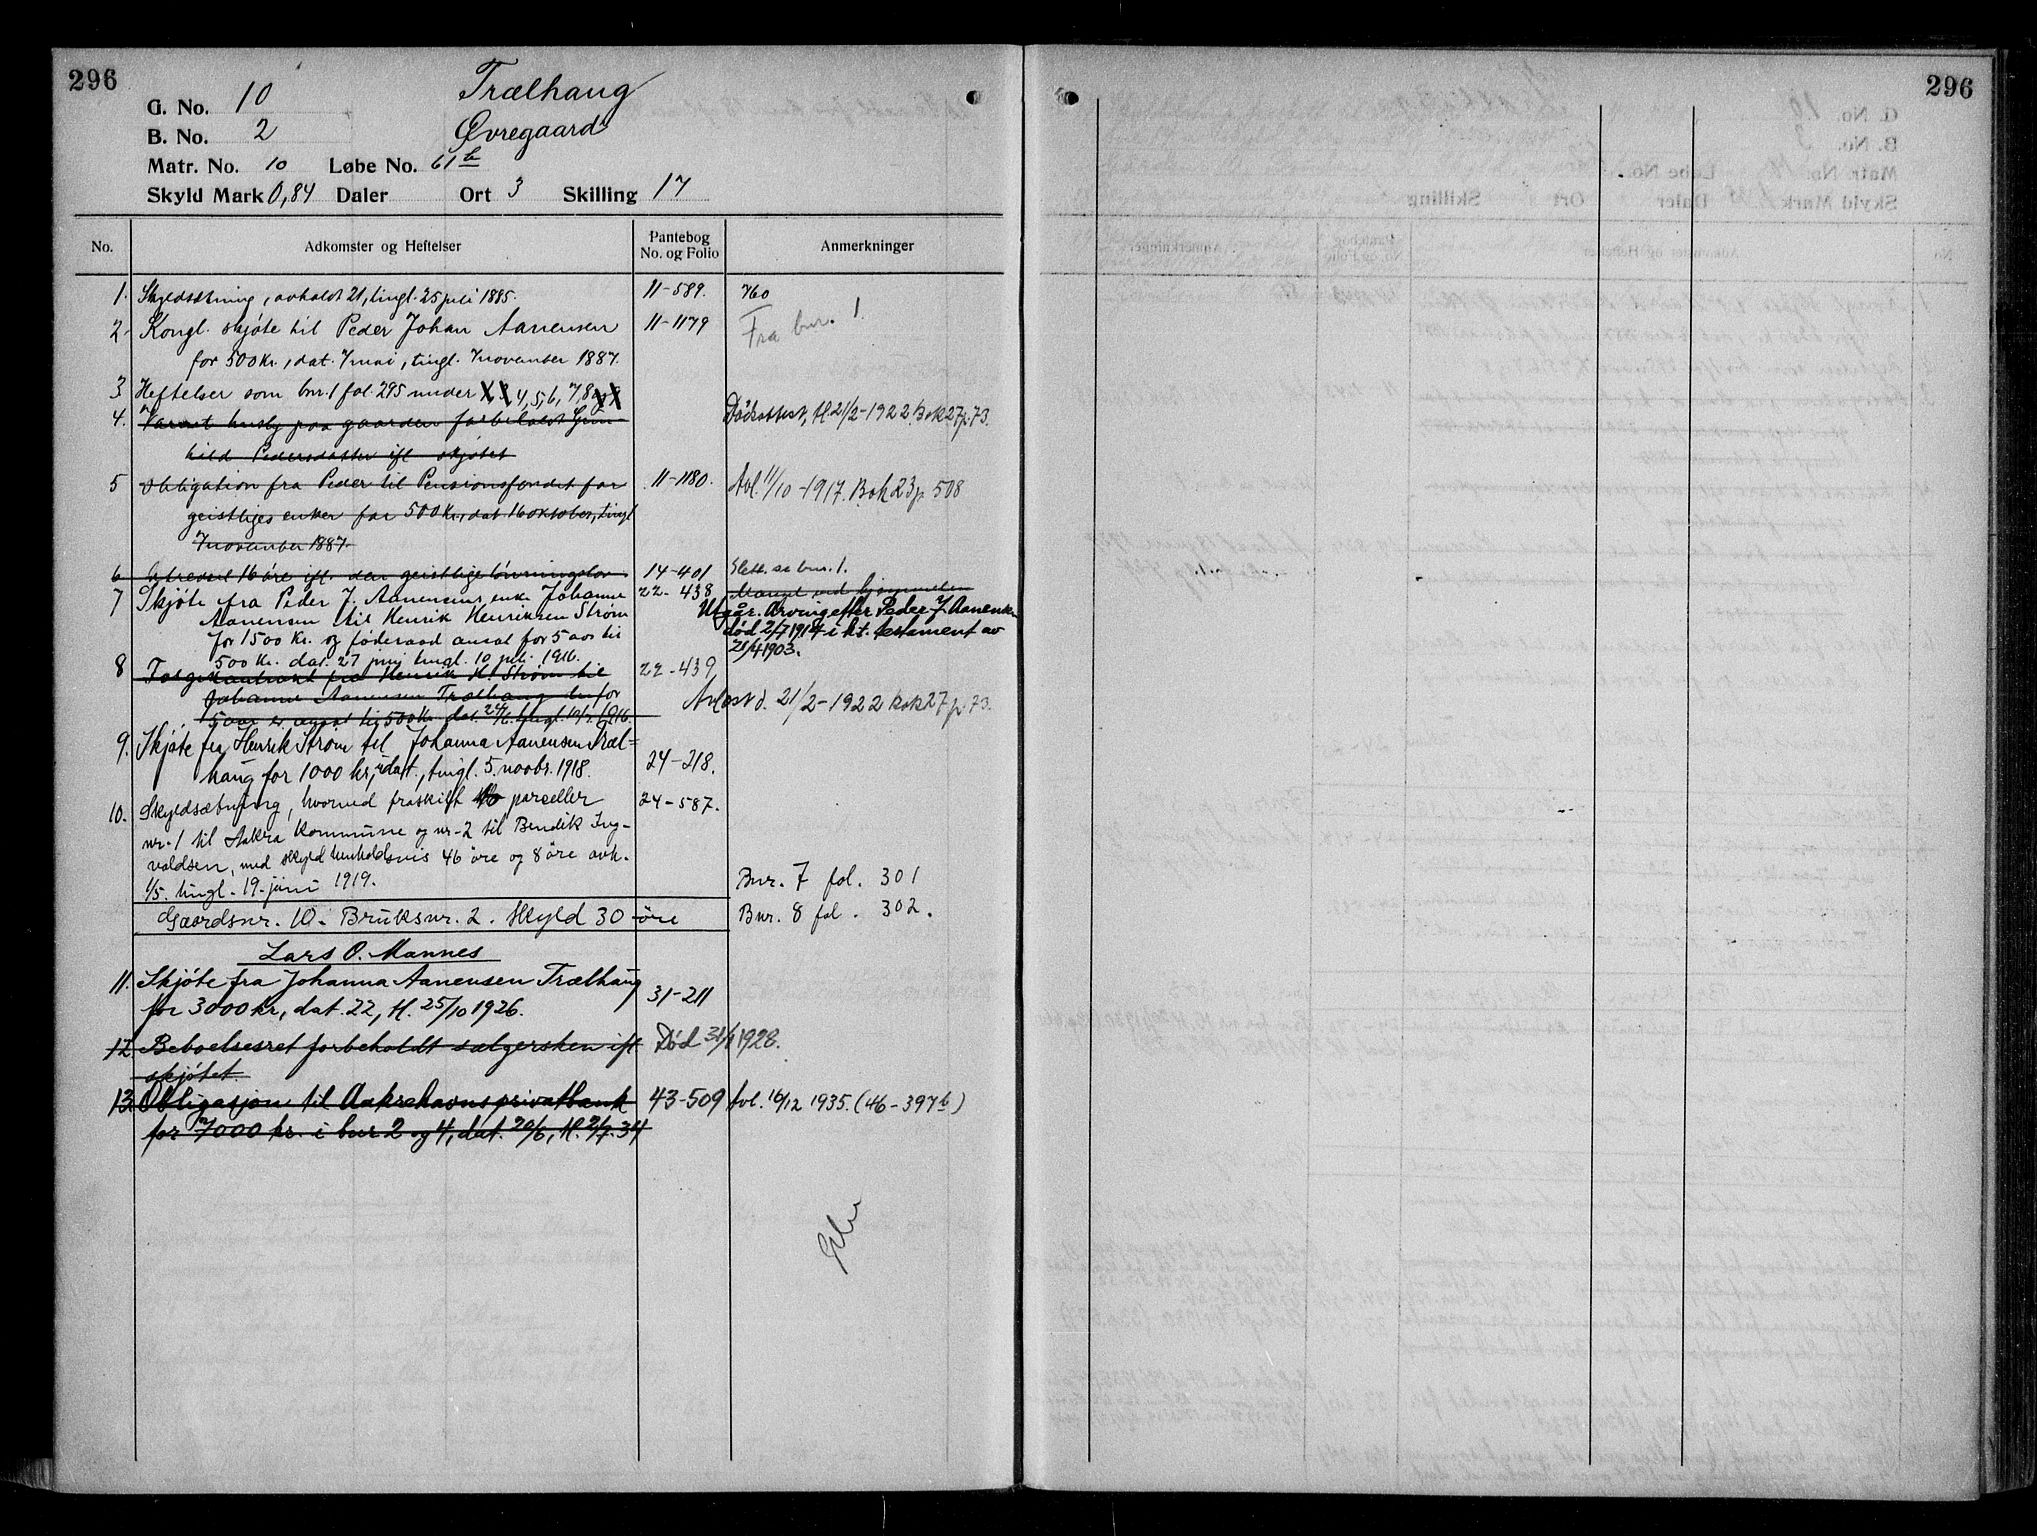 296
G. No. 10 Trælhaug
B. No. 2 Øvregaard
Matr. No. 10 Løbe No. 61 b
Skyld Mark 0,84 Daler Ort 3 Skilling 17
No. Adkomster og Heftelser Pantebog No. og Folio Anmerkninger
1. Skyldsetning, avholdt 21, tingl. 25 juli 1885. 11-589. 460
2. Kongl. skjøte til Peder Johan Aanensen 11-1179 Fra bnr. 1.
for 500 kr., dat. 7 mai, tingl. 7 november 1887.
3 Heftelser som bnr. 1 fol. 295 under 4, 5, 6, 7, 8
4. Varmt husly paa gaarden forbeholdt Gun- Dødsattest, tl. 21/2-1922 Bok 27 p. 73.
hild Pedersdatter ifl. skjøtet
5 Obligation fra Peder til Pensionsfondet for 11-1180. Avl. 11/10-1917. Bok 23 p 508
geistliges enker for 500 kr., dat. 16 oktober, tingl
7 november 1887.
6 16 øre ifl. den geistlige lovningslov 14-401 Slett. se bnr. 1.
7 Skjøte fra Peder J. Aanensens enke Johanne 22-438 Mangl. ved hjemmelen
Aanensen til Henrik Henriksen Strøm Utgår. Arving efter Peder J. Aanensen
for 1500 kr. og føderaad ansat for 5 aar til død 2/7 1914 i h.t. testament av
500 kr. dat. 27 juni tingl. 10 juli 1916. 21/4 1903.
8 Folgekontrakt fra Henrik H. Strøm til 22-439
Johanne Aanensen Trælhaug for Avlost d. 21/2-1922 bok 27 p. 73.
5 aar er ansat til 500 kr. dat. 27/6 tingl. 10/7 1916.
9. Skjøte fra Henrik Strøm til Johanna Aanensen Træl=
haug for 1000 kr, udat., tingl. 5. novbr. 1918. 24-218.
10. Skyldsætning, hvorved fraskilt to parceller 24-587.
nr. 1 til Aakra Kommune og nr. 2 til Bendik Ing-
valdsen, med skyld henholdsvis 46 øre og 8 øre avh.
1/5. tingl. 19. juni 1919. Bnr. 7 fol. 301
Gaardsnr. 10. Bruksnr. 2. Skyld 30 øre Bnr. 8 fol. 302.
Lars O. Mannes
11. Skjøte fra Johanna Aanensen Trælhaug
for 3000 kr, dat. 22, tl. 25/10 1926. 31-211
12 Beboelsesret forbeholdt sælgersken ifl Død 31/1 1928.
skjøtet.
13 Obligasjon til Aakrehavns privatbank 43-509 Avl. 16/12 1935. (46-397 b)
for 7000 kr. i bnr 2 og 4, dat. 20/6, tl. 2/7. 34
296